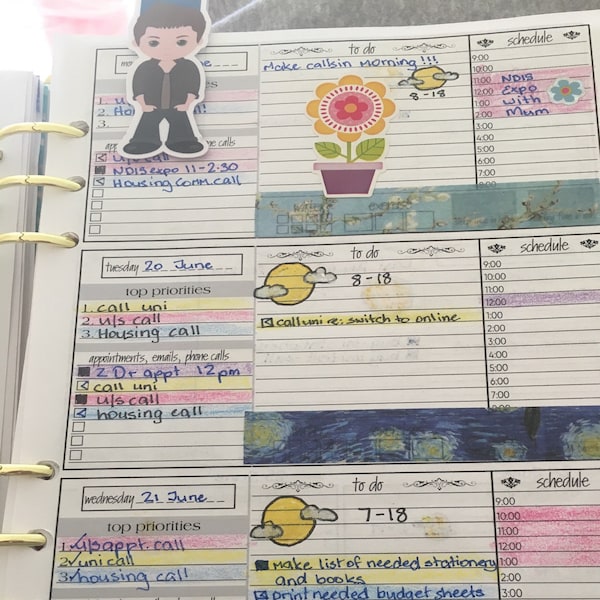 June
to do
schedule
Make calls in Morning!!!
8-18
9:00
10:00
11:00
12:00
1:00
2:00
3:00
4:00
5:00
6:00
7:00
NDIS
Expo
with
Mum
1.
2.
3.
phone calls
u/s call
NDIS expo 11-2.30
Housing comm. call
tuesday 20 June
top priorities
1. call uni
2. u/s call
3. Housing call
appointments, emails, phone calls
Dr appt 12pm
call uni
u/s call
housing call
to do
8-18
call uni re: switch to online
schedule
9:00
10:00
11:00
12:00
1:00
2:00
3:00
4:00
5:00
6:00
7:00
wednesday 21 June
top priorities
1. u/s appt. call
2. uni call
3. housing call
to do
7-18
Make list of needed stationery
and books
Print needed budget sheets
schedule
9:00
10:00
11:00
12:00
1:00
2:00
3:00